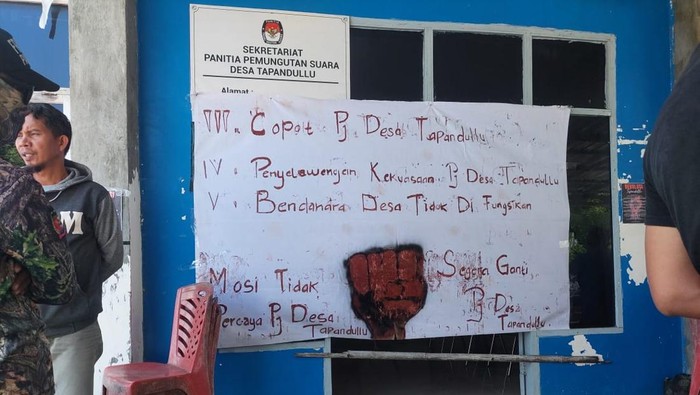 SEKRETARIAT
PANITIA PEMUNGUTAN SUARA
DESA TAPANDULLU
Alamat :
III. Copot Pj Desa Tapandullu
IV. Penyelewengan Kekuasaan Pj Desa Tapandullu
V. Bendahara Desa Tidak Di Fungsikan
Mosi Tidak
Percaya Pj Desa
Tapandullu
Segera Ganti
Pj Desa
Tapandullu